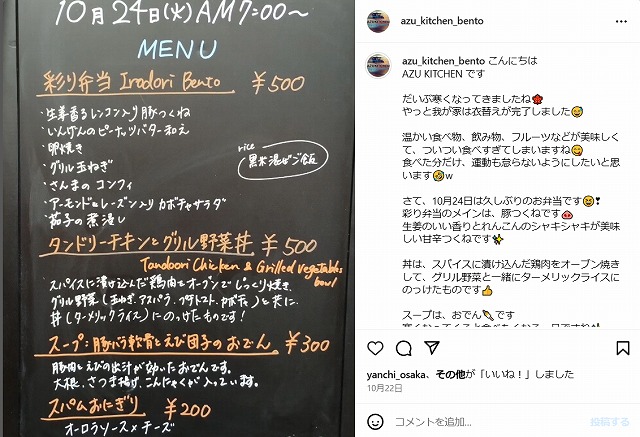 10月24日(火)AM7:00〜
MENU
彩り弁当 Irodori Bento ¥500
・生姜香るレンコン入り豚つくね
・いんげんのピーナッツバター和え
・卵焼き
・グリル玉ねぎ
・さんまのコンフィ
・アーモンドとレーズン入りカボチャサラダ
・茄子の煮浸し
rice
黒米混ぜご飯
タンドリーチキンとグリル野菜丼 ¥500
Tandoori Chicken & Grilled vegetables
bowl
スパイスに漬け込んだ鶏肉をオーブンでじっくり焼き、
グリル野菜(玉ねぎ、アスパラ、プチトマト、かぼちゃ)と共に、
丼(ターメリックライス)にのっけたものです!
スープ:豚バラ軟骨とえび団子のおでん ¥300
豚肉とえびの出汁が効いたおでんです。
大根、さつま揚げ、こんにゃくが入っています。
スパムおにぎり ¥200
オーロラソース×チーズ
azu_kitchen_bento
azu_kitchen_bento こんにちは
AZU KITCHEN です
だいぶ寒くなってきましたね🍁
やっと我が家は衣替えが完了しました😅
温かい食べ物、飲み物、フルーツなどが美味しく
て、ついつい食べすぎてしまいますね😋
食べた分だけ、運動も怠らないようにしたいと思
います🤣w
さて、10月24日は久しぶりのお弁当です😊❣
彩り弁当のメインは、豚つくねです🐽
生姜のいい香りとれんこんのシャキシャキが美味
しい甘辛つくねです✨
丼は、スパイスに漬け込んだ鶏肉をオーブン焼き
して、グリル野菜と一緒にターメリックライスに
のっけたものです👍
スープは、おでん🍢です
yanchi_osaka、その他が「いいね!」しました
10月22日
コメントを追加...
投稿する